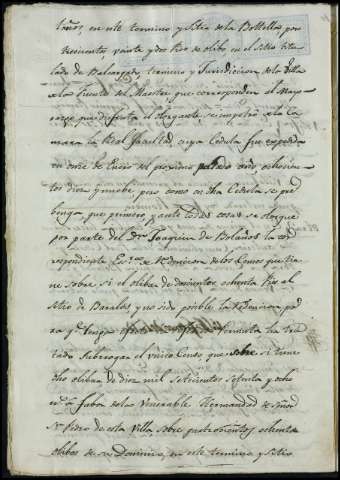 laños, en este termino y Sitio de la Bottella, por
veinte y dos Pies de olibo en el Sitio titu
lado de termino y Jurisdiccion de la Villa
de la Fuente del Maestre, que corresponden al Mayo
razgo que disfruta el otorgante, se impetró a la Ca
mara la Real facultad, cuya Cedula fue expedida
en once de Enero del proximo pasado año, ochocien
tos diez y nueve; pero como en dha Cedula se pre
benga, que primero, y ante todas cosas se otorgue
por parte del Dn Joaquin de Bolaños la cor
respondiente Esra de Redencion de los Censos que tie
ne sobre si el olibar de doscientos ochenta Pies al
sitio de y no sido posible la Redencion po
dra qe tenga la
tado Subrogar el unico Censo que sobre si tiene
dho olibar de diez mil Setecientos Setenta y ocho
a fabor de la Venerable Hermandad de Señor
Sn Pedro de esta Villa sobre quatrocientos ochenta
olibos de su Dominio, en este termino y Sitio